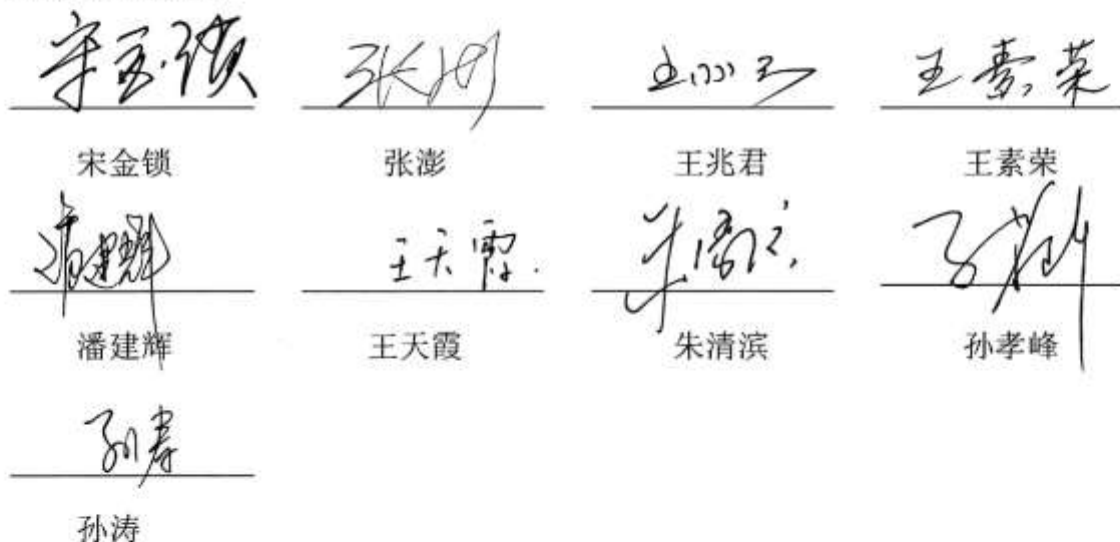 宋金锁 张澎 王兆君 王素荣
王素荣
宋金锁 张澎 王兆君 王素荣
潘建辉 王天霞
潘建辉 王天霞 朱清滨 孙孝峰
孙涛
孙涛